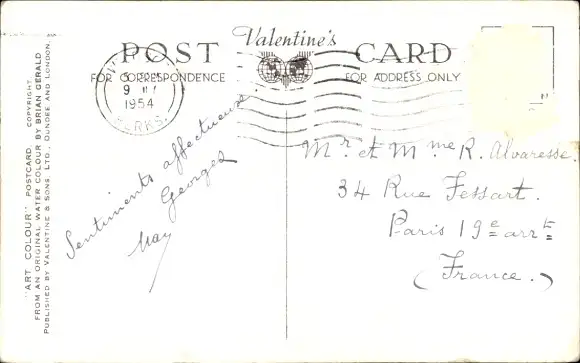 Valentine's
POST CARD
FOR CORRESPONDENCE
FOR ADDRESS ONLY
1954
BERKS.
Sentiments affectueux
Georges
May
Mr. et Mme R. Alvaresse.
34 Rue Fessart.
Paris 19e arrt
(France.)
"ART COLOUR" POSTCARD. COPYRIGHT
FROM AN ORIGINAL WATER COLOUR BY BRIAN GERALD
PUBLISHED BY VALENTINE & SONS, LTD., DUNDEE AND LONDON.